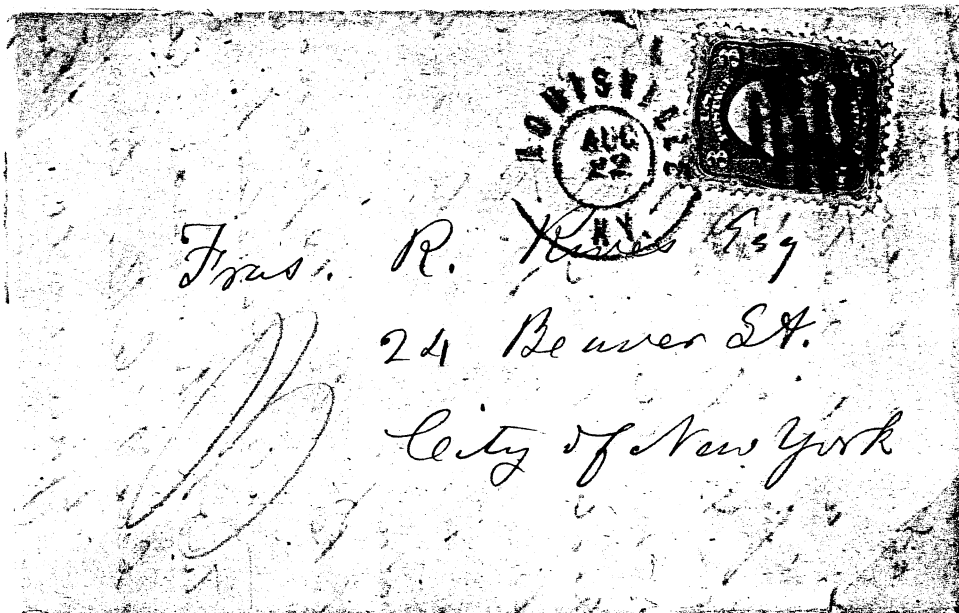 LOUISVILLE
AUG
22
KY.
3
Fras. R. Rives Esq
24 Beaver St.
City of New York